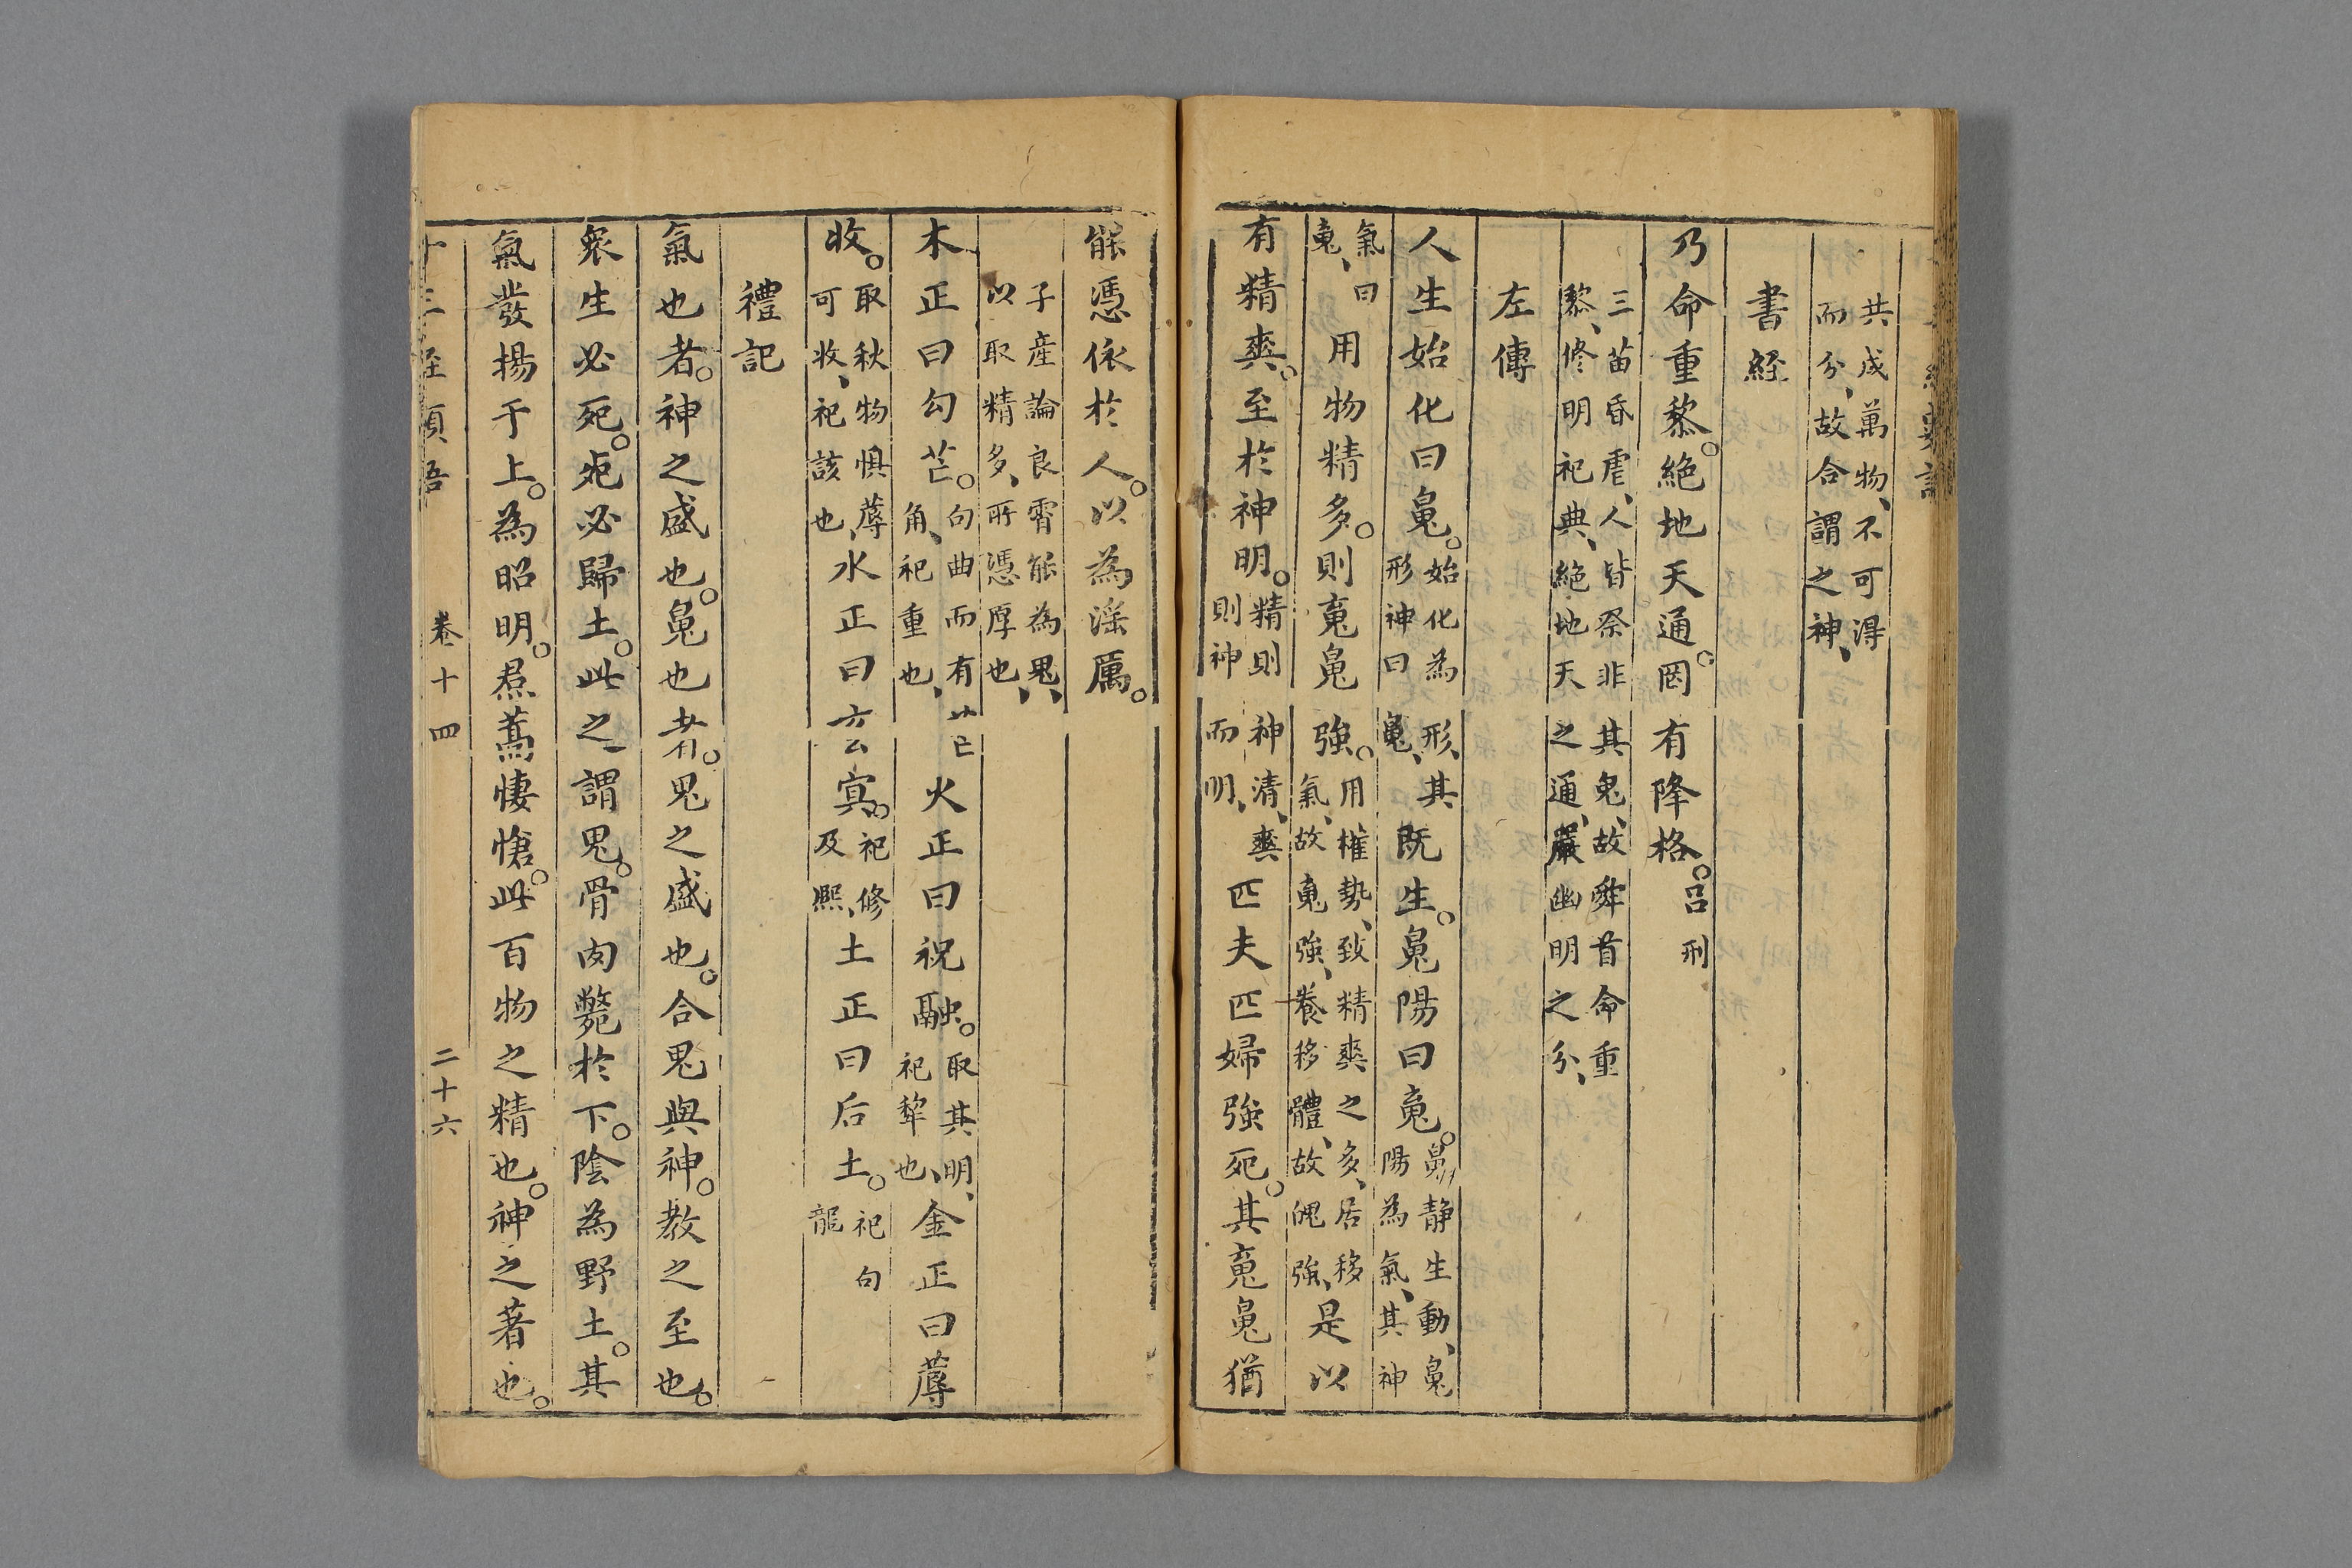 共成萬物、不可得
而分、故合謂之神、
書経
乃命重黎。絶地天通。罔有降格。呂刑
三苗昏虐、人皆祭非其鬼、故舜首命重
黎、修明祀典、絶地天之通、嚴幽明之分、
左傳
人生始化曰鬽。始化為形、其
形神曰鬽、
既生。鬽陽曰䰟。鬽静生動、鬽
陽為氣、其神
氣曰
䰟、
用物精多。則䰟鬽強。用權勢、致精爽之多、居移
氣、故䰟強、養移體、故魄強、
是以
有精爽。至於神明。精則神清、爽
則神而明、
匹夫匹婦強死。其䰟鬽猶
能憑依於人。以為滛厲。
子産論良霄能為鬼、
以取精多、所憑厚也、
木正曰勾芒。句曲而有芒
角、祀重也、
火正曰祝融。取其明、
祀犂也、
金正曰蓐
收。取秋物惧蓐
可收、祀該也、
水正曰玄冥。祀修
及熈、
土正曰后土。祀句
龍
禮記
氣也者。神之盛也。鬽也者。鬼之盛也。合鬼與神。教之至也。
衆生必死。死必歸土。此之謂鬼。骨肉斃於下。陰為野土。其
氣發揚于上。為昭明。焄蒿悽愴。此百物之精也。神之著也。
十三経 卷十四 二十六